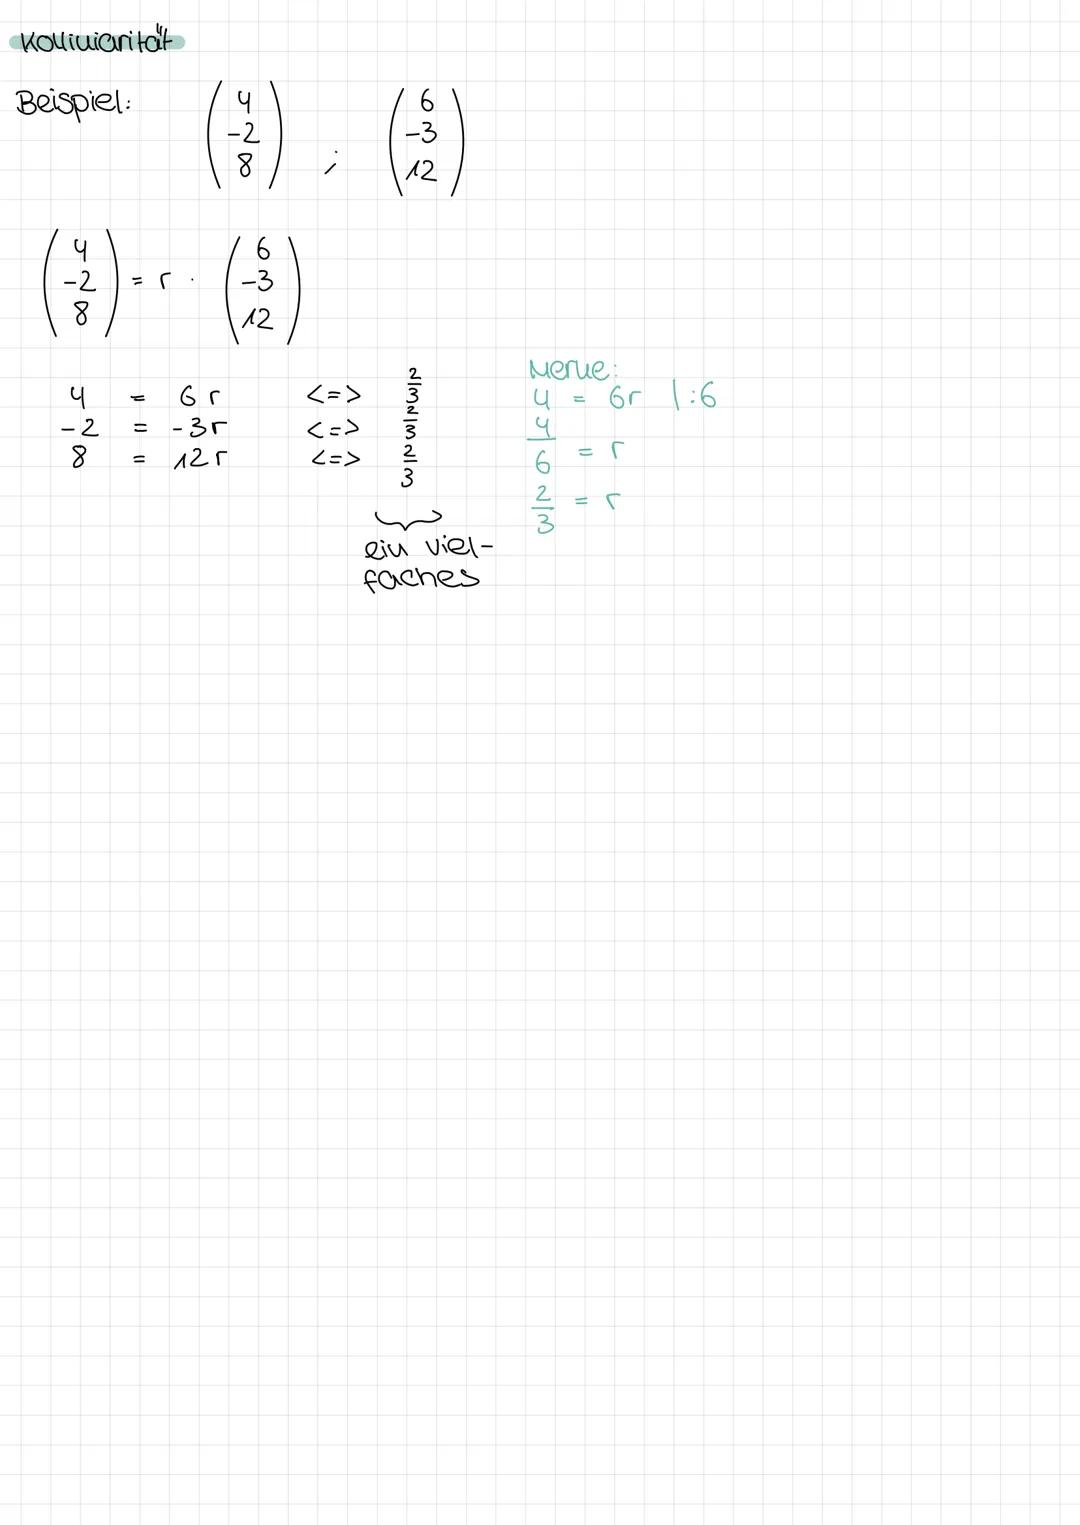 Kolliniarität
Beispiel: (4 -2 8) ; (6 -3 12)
(4 -2 8) = r · (6 -3 12)
4 = 6r <=> 2/3
-2 = -3r <=> 2/3
8 = 12r <=> 2/3
ein viel-
faches
Merke:
4 = 6r |:6
4/6 = r
2/3 = r